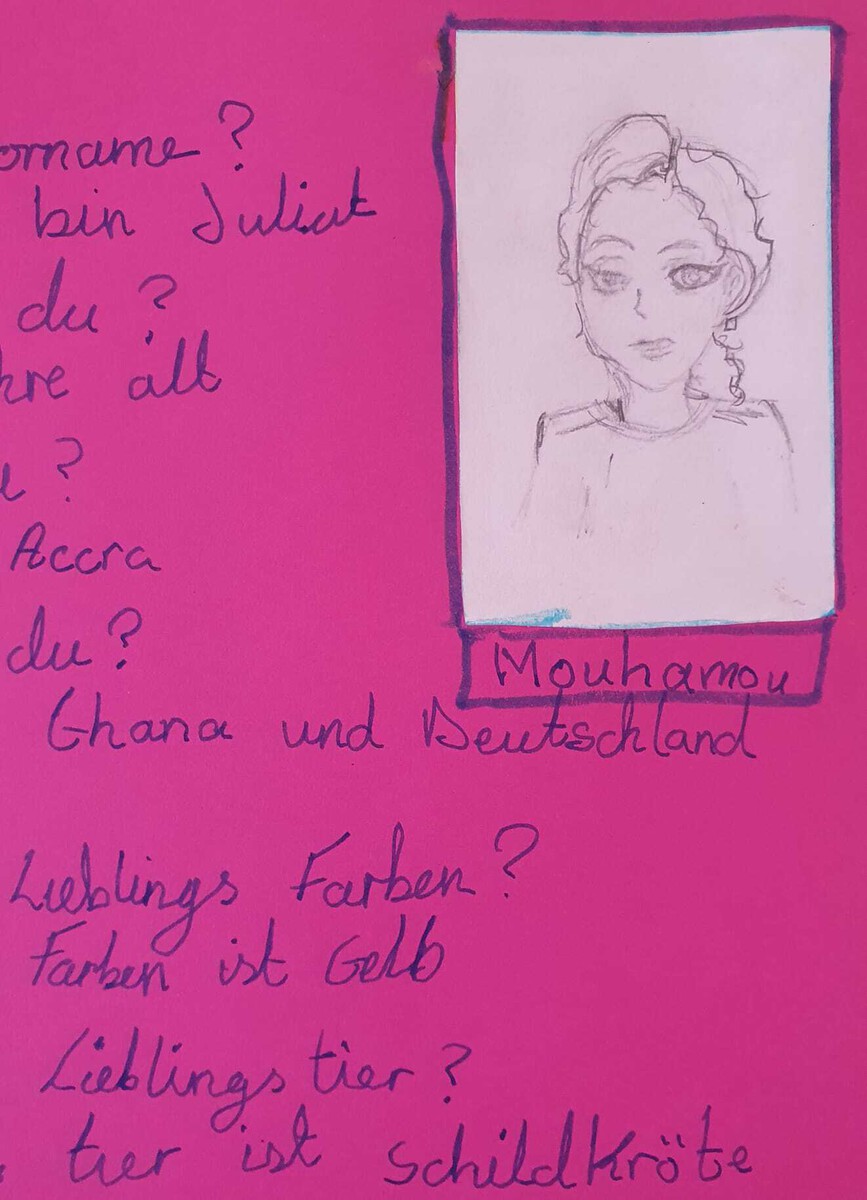 orname?
bin Juliat
du?
hre alt
?
Accra
du?
Mouhamou
Ghana und Deutschland
Lieblings Farben?
Farben ist Gelb
Lieblings tier?
tier ist Schildkröte